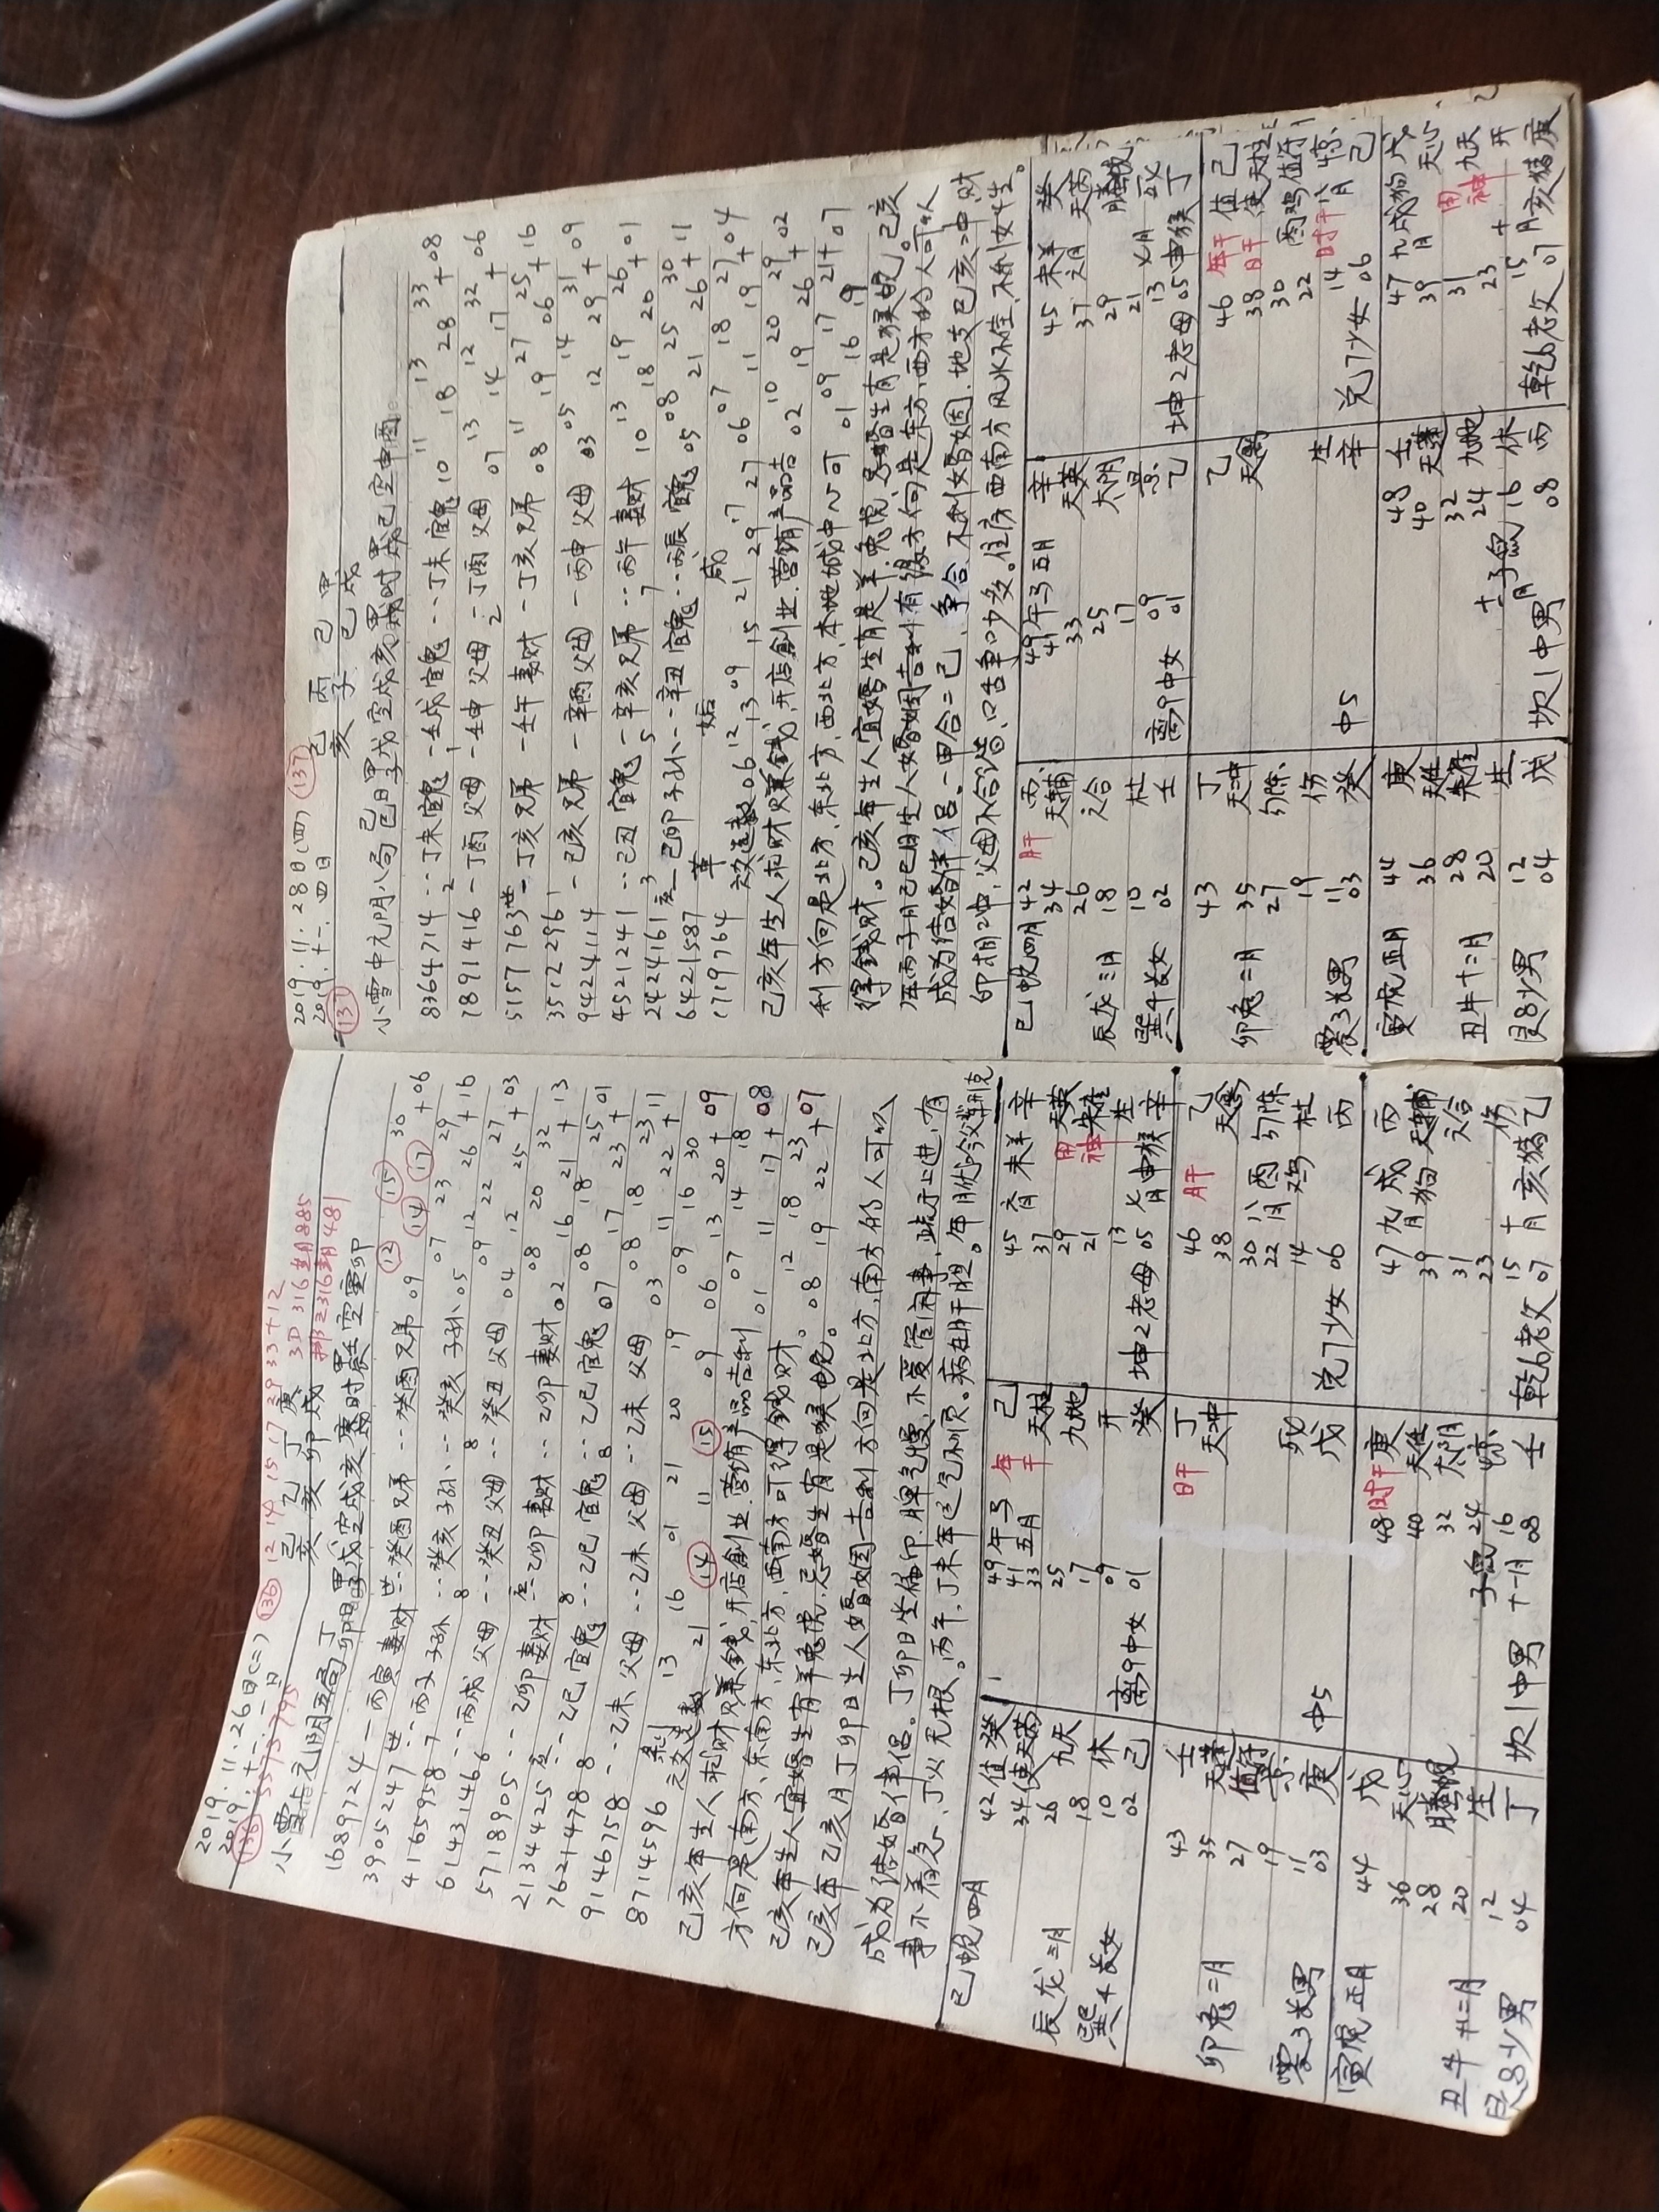 2019.11.26日(二)
2019.十一.一日
(136) 5575795 (136) 12 14 15 17 29 33+12
己 乙 丁 庚
亥 亥 卯 戌
3D 316
小雪上元阴五局
1689724 一丙寅妻财 世-癸酉兄弟 -- 癸酉兄弟 09 12 15 30
3905247 世--丙子子孙 --癸亥子孙 -- 癸亥子孙 07 14 23 17 29 +06
4165958 --丙戌父母 --癸丑父母 -- 癸丑父母 05 12 26 +16
6143146 --乙卯妻财 应--乙卯妻财 -- 乙卯妻财 04 09 12 22 25 27 +03
5718905
2134425 应--乙巳官鬼 --乙巳官鬼 -- 乙巳官鬼 02 08 16 20 21 32 +13
7621478 --乙未父母 --乙未父母 -- 乙未父母 07 08 17 18 23 25 +01
9146758
8714596 剥 03 08 11 18 22 23 +11
六爻选数 13 21 16 14 01 11 21 15 20 09 19 06 09 13 16 20 30 +09
己亥年生人求财赚錢,开店創业.营销产品吉利 01 07 11 14 17 18 +08
方向是南方、东南方、东北方,西南方可得錢财。
己亥年生人宜婚生有羊兔虎.忌婚生有是猴蛇。 08 12 19 18 22 23 +07
己亥年乙亥月丁卯日生人婚姻吉利方向是北方,南方的人可以
成为结婚伴侣。丁卯日坐偏印.脾气慢,不爱管闲事,疏于上进,有
事不着急、丁火无根。丙午、丁未年运气不顺。病在肝胆。年月伏吟父辈刑克
巳蛇四月 42 值癸
34 使天芮
辰龙三月 26 九天
18
巽4长女 10 休
02 己
49 午马 年 己
41 五月 干
33 天柱
25
17 九地
09 开
离9中女 01 癸
45 未羊 辛
37
29 用 天英
21 神 朱雀
13 生
坤2老母 05 七月申猴 辛
43 壬
卯兔二月 35 天蓬
27 值符
19 景
11
震3长男 03 庚
日干 丁
天冲
死
中5 戊
46 月干 乙
38 天禽
30 八月 酉鸡 勾陈
22
14 杜
兑7少女 06 丙
寅虎正月 44 戊
36 天心
28 螣蛇
丑牛十二月 20
12 生
艮8少男 04 丁
48 时干 庚
40 天任
32 太阴
子鼠 24 惊
16
坎1中男 十一月 08 壬
47 九月 戌狗 丙
39 天辅
31 六合
23
15 伤
乾6老父 07 十月 亥猪 乙
2019.11.28日(四) (137)
2019.十一.四日
己 丙 己 甲
亥 子 巳 戌
(137)
小雪中元阴八局
8364714 --丁未官鬼 一壬戌官鬼 --丁未官鬼 10 11 18 13 28 33 +08
7891416 一丁酉父母 一壬申父母 一丁酉父母 07 13 14 12 17 32 +06
5157763 世一丁亥兄弟 一壬午妻财 一丁亥兄弟 08 11 19 27 06 25 +16
3512296
9424114 一己亥兄弟 一辛酉父母 一丙申父母 03 05 12 14 29 31 +09
4521241 --己丑官鬼 一辛亥兄弟 --丙午妻财 10 13 18 19 20 26 +01
2424161 应一己卯子孙 --辛丑官鬼 --丙辰官鬼 05 08 21 25 26 30 +11
6421587 革 姤 咸
1719764 六爻选数 06 12 13 09 15 21 29 17 27 06 07 11 18 19 27 +04
己亥年生人求财赚錢,开店創业.营销产品吉 02 10 19 20 26 29 +02
利方向是北方、东北方,西北方,本地城中心可 01 09 16 17 19 21 +07
得錢财。己亥年生人宜婚生有是羊.兔虎,忌婚生有是猴蛇。己亥
年丙子月己巳日生人婚姻吉利有缘方向是东方,西方的人可以
成为结婚伴侣。一甲合二己,争合,不利婚姻.地支巳亥冲.财
印相冲,父母不合谐,口舌争吵多。住房西南方风水不佳,不利女生。
巳蛇四月 42 月干 丙
34 天辅
26
辰龙三月 18 六合
10 杜
巽4长女 02 壬
49 午马五月 辛
41
33 天英
25 太阴
17
09 景
离9中女 01 乙
45 未羊 癸
37 六月 天芮
29 螣蛇
21
13 七月 死
坤2老母 05 申猴 丁
43 丁
卯兔二月 35 天冲
27 勾陈
19 伤
11
震3长男 03 癸
乙
天禽
生
中5 辛
46 年干 值己
38 日干 使天柱
30 酉鸡 值符
22
14 时干 八月 惊
兑7少女 06 己
寅虎正月 44 庚
36 天任
28 朱雀
丑牛十二月 20
12 生
艮8少男 04 戊
48 壬
40 天蓬
32
24 九地
十一月 子鼠 16 休
坎1中男 08 丙
47 九月 戌狗 戊
39 天心
31 用
23 神 九天
15 开
乾6老父 07 十月 亥猪 庚